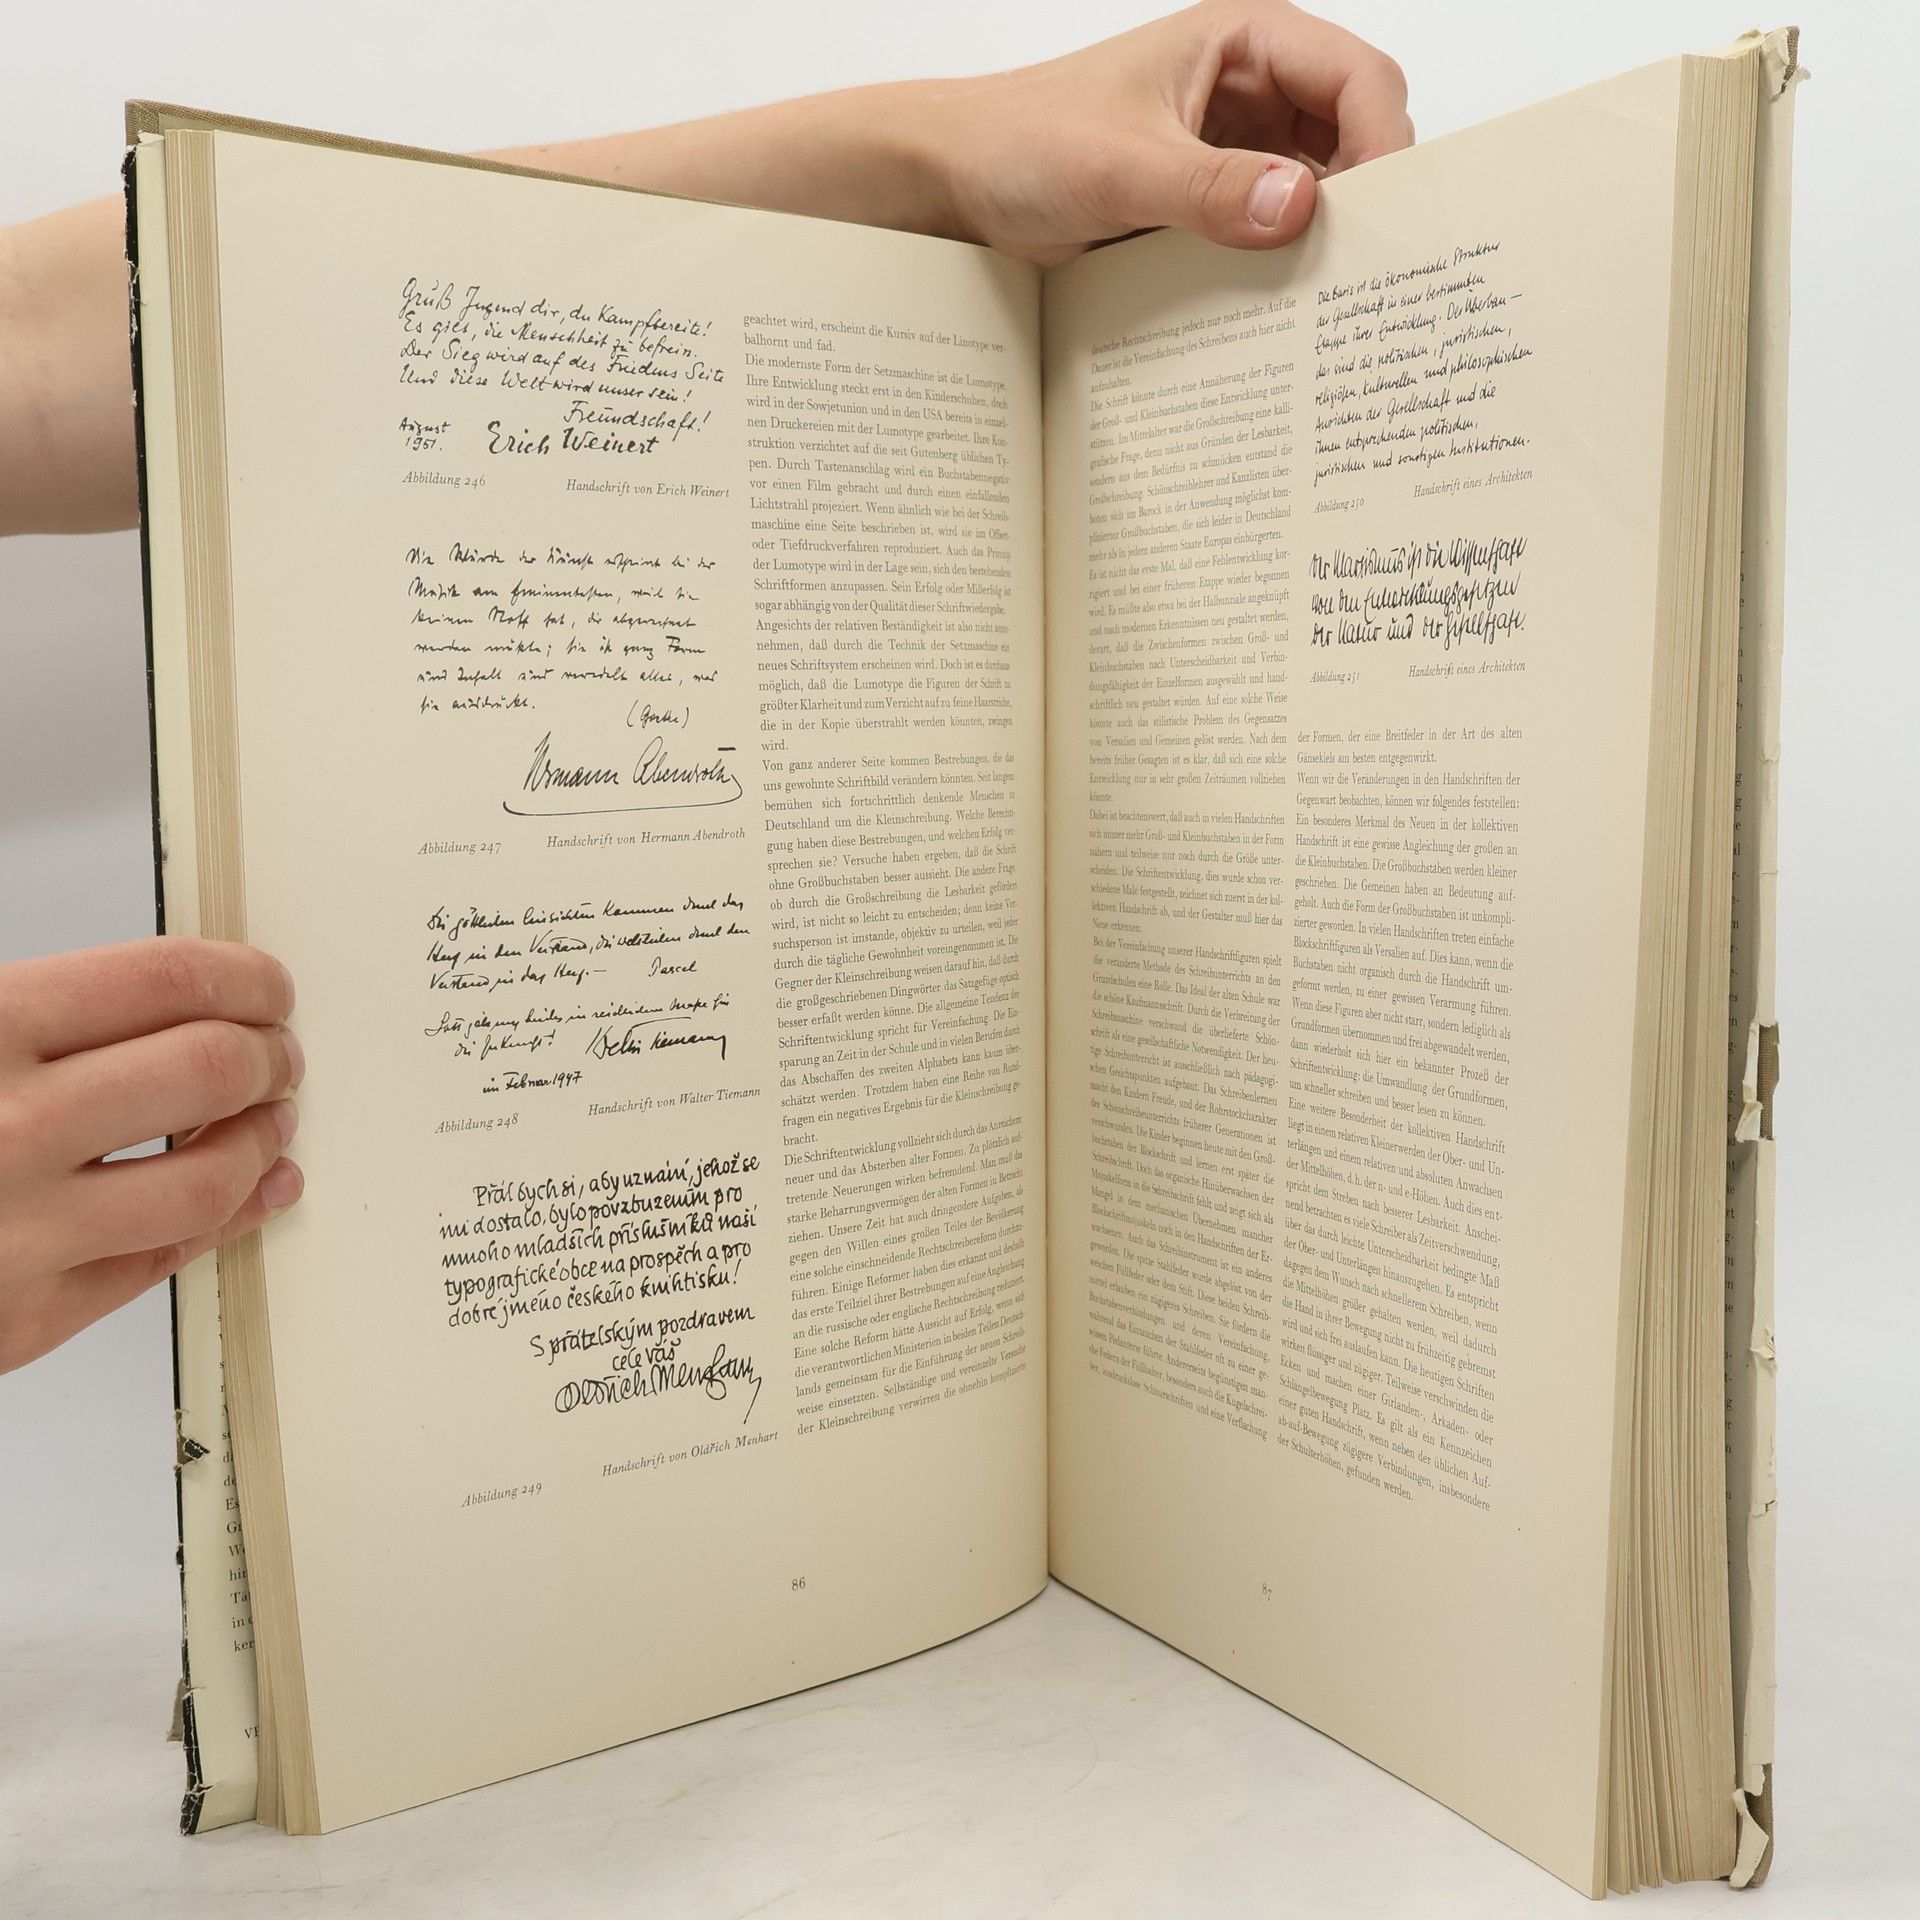 Gruß Jugend dir, du Kampfbereite!
Es gilt, die Menschheit zu befrein.
Der Sieg wird auf des Friedens Seite
Und diese Welt wird unser sein!
Freundschaft!
August
1951.
Erich Weinert
Abbildung 246
Handschrift von Erich Weinert
Die Würde der Kunst erscheint bei der
Musik am eminentesten, weil sie
keinen Stoff hat, der abgerechnet
werden müßte; sie ist ganz Form
und Inhalt und veredelt alles, was
sie ausdrückt.
(Goethe)
Hermann Abendroth
Abbildung 247
Handschrift von Hermann Abendroth
Die göttlichen Einsichten kommen durch das
Herz in den Verstand, die weltlichen durch den
Verstand in das Herz. – Pascal
im Februar 1947
Abbildung 248
Handschrift von Walter Tiemann
Přál bych si, aby uznání, jehož se
mi dostalo, bylo povzbuzením pro
mnoho mladších příslušníků naší
typografické obce na prospěch a pro
dobré jméno českého knihtisku!
S přátelským pozdravem
cele váš
Oldřich Menhart
Abbildung 249
Handschrift von Oldřich Menhart
geachtet wird, erscheint die Kursiv auf der Linotype ver-
balhornt und fad.
Die modernste Form der Setzmaschine ist die Lumotype.
Ihre Entwicklung steckt erst in den Kinderschuhen, doch
wird in der Sowjetunion und in den USA bereits in einzel-
nen Druckereien mit der Lumotype gearbeitet. Ihre Kon-
struktion verzichtet auf die seit Gutenberg üblichen Ty-
pen. Durch Tastenanschlag wird ein Buchstabennegativ
vor einen Film gebracht und durch einen einfallenden
Lichtstrahl projeziert. Wenn ähnlich wie bei der Schreib-
maschine eine Seite beschrieben ist, wird sie im Offset-
oder Tiefdruckverfahren reproduziert. Auch das Prinzip
der Lumotype wird in der Lage sein, sich den bestehenden
Schriftformen anzupassen. Sein Erfolg oder Mißerfolg ist
sogar abhängig von der Qualität dieser Schriftwiedergabe.
Angesichts der relativen Beständigkeit ist also nicht anzu-
nehmen, daß durch die Technik der Setzmaschine ein
neues Schriftsystem erscheinen wird. Doch ist es durchaus
möglich, daß die Lumotype die Figuren der Schrift zu
größter Klarheit und zum Verzicht auf zu feine Haarstriche,
die in der Kopie überstrahlt werden könnten, zwingen
wird.
Von ganz anderer Seite kommen Bestrebungen, die das
uns gewohnte Schriftbild verändern könnten. Seit langem
bemühen sich fortschrittlich denkende Menschen in
Deutschland um die Kleinschreibung. Welche Berechti-
gung haben diese Bestrebungen, und welchen Erfolg ver-
sprechen sie? Versuche haben ergeben, daß die Schrift
ohne Großbuchstaben besser aussieht. Die andere Frage,
ob durch die Großschreibung die Lesbarkeit gefördert
wird, ist nicht so leicht zu entscheiden; denn keine Ver-
suchsperson ist imstande, objektiv zu urteilen, weil jeder
durch die tägliche Gewohnheit voreingenommen ist. Die
Gegner der Kleinschreibung weisen darauf hin, daß durch
die großgeschriebenen Dingwörter das Satzgefüge optisch
besser erfaßt werden könne. Die allgemeine Tendenz der
Schriftentwicklung spricht für Vereinfachung. Die Ein-
sparung an Zeit in der Schule und in vielen Berufen durch
das Abschaffen des zweiten Alphabets kann kaum über-
schätzt werden. Trotzdem haben eine Reihe von Rund-
fragen ein negatives Ergebnis für die Kleinschreibung ge-
bracht.
Die Schriftentwicklung vollzieht sich durch das Anreichern
neuer und das Absterben alter Formen. Zu plötzlich auf-
tretende Neuerungen wirken befremdend. Man muß das
starke Beharrungsvermögen der alten Formen in Betracht
ziehen. Unsere Zeit hat auch dringendere Aufgaben, als
gegen den Willen eines großen Teiles der Bevölkerung
eine solche einschneidende Rechtschreibereform durchzu-
führen. Einige Reformer haben dies erkannt und deshalb
das erste Teilziel ihrer Bestrebungen auf eine Angleichung
an die russische oder englische Rechtschreibung reduziert.
Eine solche Reform hätte Aussicht auf Erfolg, wenn sich
die verantwortlichen Ministerien in beiden Teilen Deutsch-
lands gemeinsam für die Einführung der neuen Schreib-
weise einsetzten. Selbständige und vereinzelte Versuche
der Kleinschreibung verwirren die ohnehin komplizierte
86
deutsche Rechtschreibung jedoch nur noch mehr. Auf die
Dauer ist die Vereinfachung des Schreibens auch hier nicht
aufzuhalten.
Die Schrift könnte durch eine Annäherung der Figuren
der Groß- und Kleinbuchstaben diese Entwicklung unter-
stützen. Im Mittelalter war die Großschreibung eine kalli-
grafische Frage, denn nicht aus Gründen der Lesbarkeit,
sondern aus dem Bedürfnis zu schmücken entstand die
Großschreibung. Schönschreiblehrer und Kanzlisten über-
boten sich im Barock in der Anwendung möglichst kom-
plizierter Großbuchstaben, die sich leider in Deutschland
mehr als in jedem anderen Staate Europas einbürgerten.
Es ist nicht das erste Mal, daß eine Fehlentwicklung kor-
rigiert und bei einer früheren Etappe wieder begonnen
wird. Es müßte also etwa bei der Halbunziale angeknüpft
und nach modernen Erkenntnissen neu gestaltet werden,
derart, daß die Zwischenformen zwischen Groß- und
Kleinbuchstaben nach Unterscheidbarkeit und Verbin-
dungsfähigkeit der Einzelformen ausgewählt und hand-
schriftlich neu gestaltet würden. Auf eine solche Weise
könnte auch das stilistische Problem des Gegensatzes
von Versalien und Gemeinen gelöst werden. Nach dem
bereits früher Gesagten ist es klar, daß sich eine solche
Entwicklung nur in sehr großen Zeiträumen vollziehen
könnte.
Dabei ist beachtenswert, daß auch in vielen Handschriften
sich immer mehr Groß- und Kleinbuchstaben in der Form
nähern und teilweise nur noch durch die Größe unter-
scheiden. Die Schriftentwicklung, dies wurde schon ver-
schiedene Male festgestellt, zeichnet sich zuerst in der kol-
lektiven Handschrift ab, und der Gestalter muß hier das
Neue erkennen.
Bei der Vereinfachung unserer Handschriftfiguren spielt
die veränderte Methode des Schreibunterrichts an den
Grundschulen eine Rolle. Das Ideal der alten Schule war
die schöne Kaufmannsschrift. Durch die Verbreitung der
Schreibmaschine verschwand die überlieferte Schön-
schrift als eine gesellschaftliche Notwendigkeit. Der heu-
tige Schreibunterricht ist ausschließlich nach pädagogi-
schen Gesichtspunkten aufgebaut. Das Schreibenlernen
macht den Kindern Freude, und der Rohrstockcharakter
des Schönschreibeunterrichts früherer Generationen ist
verschwunden. Die Kinder beginnen heute mit den Groß-
buchstaben der Blockschrift und lernen erst später die
Schreibschrift. Doch das organische Hinüberwachsen der
Majuskelform in die Schreibschrift fehlt und zeigt sich als
Mangel in dem mechanischen Übernehmen mancher
Blockschriftmajuskeln noch in den Handschriften der Er-
wachsenen. Auch das Schreibinstrument ist ein anderes
geworden. Die spitze Stahlfeder wurde abgelöst von der
weichen Füllfeder oder dem Stift. Diese beiden Schreib-
mittel erlauben ein zügigeres Schreiben. Sie fördern die
Buchstabenverbindungen und deren Vereinfachung,
während das Eintauchen der Stahlfeder oft zu einer ge-
wissen Pedanterie führte. Andererseits begünstigen man-
che Federn der Füllhalter, besonders auch die Kugelschrei-
ber, ausdruckslose Schnurschriften und eine Verflachung
Die Basis ist die ökonomische Struktur
der Gesellschaft in einer bestimmten
Etappe ihrer Entwicklung. Der Überbau –
das sind die politischen, juristischen,
religiösen, kulturellen und philosophischen
Ansichten der Gesellschaft und die
ihnen entsprechenden politischen,
juristischen und sonstigen Institutionen.
Abbildung 250
Handschrift eines Architekten
Der Marxismus ist die Wissenschaft
von den Entwicklungsgesetzen
der Natur und der Gesellschaft.
Abbildung 251
Handschrift eines Architekten
der Formen, der eine Breitfeder in der Art des alten
Gänsekiels am besten entgegenwirkt.
Wenn wir die Veränderungen in den Handschriften der
Gegenwart beobachten, können wir folgendes feststellen:
Ein besonderes Merkmal des Neuen in der kollektiven
Handschrift ist eine gewisse Angleichung der großen an
die Kleinbuchstaben. Die Großbuchstaben werden kleiner
geschrieben. Die Gemeinen haben an Bedeutung auf-
geholt. Auch die Form der Großbuchstaben ist unkompli-
zierter geworden. In vielen Handschriften treten einfache
Blockschriftfiguren als Versalien auf. Dies kann, wenn die
Buchstaben nicht organisch durch die Handschrift um-
geformt werden, zu einer gewissen Verarmung führen.
Wenn diese Figuren aber nicht starr, sondern lediglich als
Grundformen übernommen und frei abgewandelt werden,
dann wiederholt sich hier ein bekannter Prozeß der
Schriftentwicklung: die Umwandlung der Grundformen,
um schneller schreiben und besser lesen zu können.
Eine weitere Besonderheit der kollektiven Handschrift
liegt in einem relativen Kleinerwerden der Ober- und Un-
terlängen und einem relativen und absoluten Anwachsen
der Mittelhöhen, d. h. der n- und e-Höhen. Auch dies ent-
spricht dem Streben nach besserer Lesbarkeit. Anschei-
nend betrachten es viele Schreiber als Zeitverschwendung,
über das durch leichte Unterscheidbarkeit bedingte Maß
der Ober- und Unterlängen hinauszugehen. Es entspricht
dagegen dem Wunsch nach schnellerem Schreiben, wenn
die Mittelhöhen größer gehalten werden, weil dadurch
die Hand in ihrer Bewegung nicht zu frühzeitig gebremst
wird und sich frei auslaufen kann. Die heutigen Schriften
wirken flüssiger und zügiger. Teilweise verschwinden die
Ecken und machen einer Girlanden-, Arkaden- oder
Schlängelbewegung Platz. Es gilt als ein Kennzeichen
einer guten Handschrift, wenn neben der üblichen Auf-
ab-auf-Bewegung zügigere Verbindungen, insbesondere
der Schulterhöhen, gefunden werden.
87